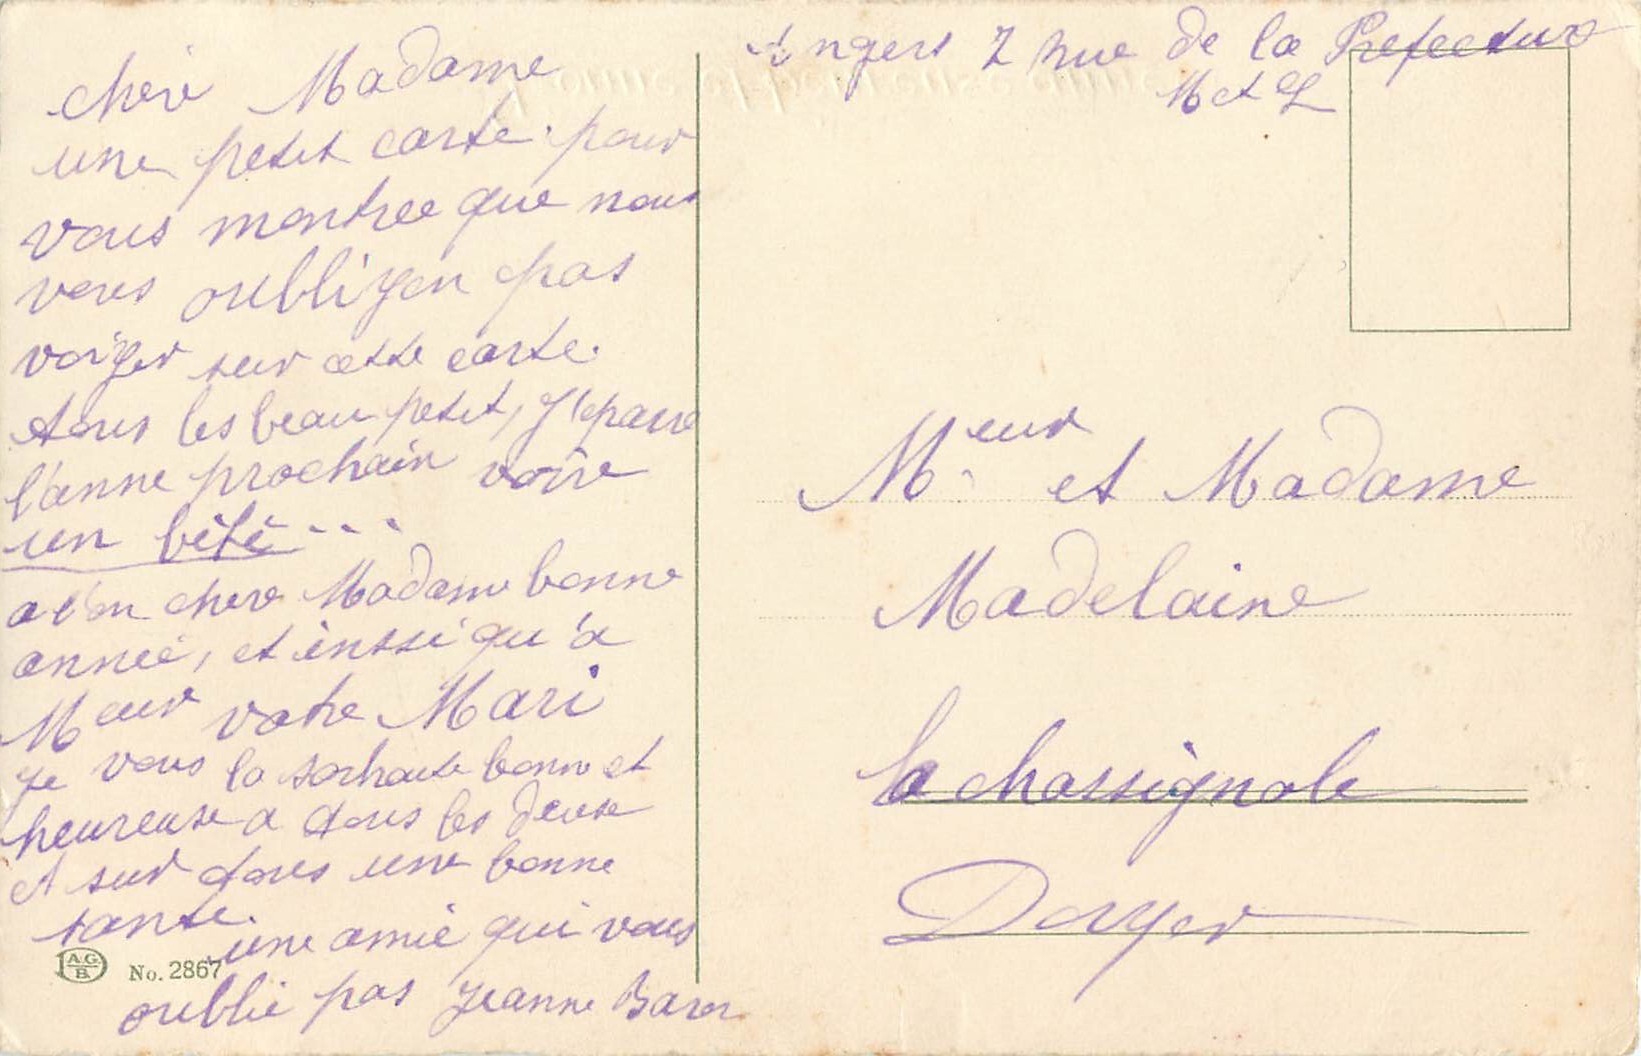 chère Madame
une petit carte pour
vous montree que nous
vous oubliyon pas
voiyer sur cette carte.
tous les beau petit, j'epaire
l'anne prochain voire
un bébé - - -
alon chere Madame bonne
année, et inssi qu'a
Meur votre Mari
je vous la souhaite bonne et
heureuse a tous les deuse
et sur tous une bonne
sante.
une amie qui vous
oublie pas Jeanne
A.G. B. No. 2867
Angers 7 rue de la Prefecture
M et L
Meur et Madame
Madelaine
la chassignole
Doyer